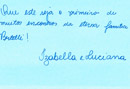 Que este seja o primeiro de
muitos encontros da eterna família
Biratti!
Izabella e Luciana